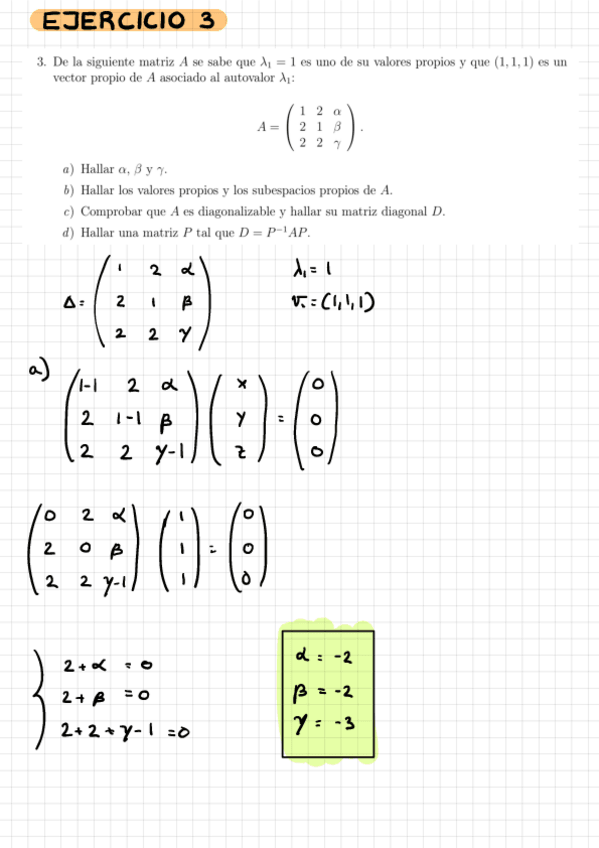 EJERCICIO 3
3. De la siguiente matriz A se sabe que λ₁ = 1 es uno de su valores propios y que (1, 1, 1) es un
vector propio de A asociado al autovalor λ₁:
A = ( 1 2 α
2 1 β
2 2 γ ) .
a) Hallar α, β y γ.
b) Hallar los valores propios y los subespacios propios de A.
c) Comprobar que A es diagonalizable y hallar su matriz diagonal D.
d) Hallar una matriz P tal que D = P⁻¹AP.
A = ( 1 2 α
2 1 β
2 2 γ )
λ₁ = 1
v₁ = (1,1,1)
a)
( 1-1 2 α ) ( x ) ( 0 )
( 2 1-1 β ) ( y ) = ( 0 )
( 2 2 γ-1 ) ( z ) ( 0 )
( 0 2 α ) ( 1 ) ( 0 )
( 2 0 β ) ( 1 ) = ( 0 )
( 2 2 γ-1 ) ( 1 ) ( 0 )
2 + α = 0
2 + β = 0
2 + 2 + γ - 1 = 0
α = -2
β = -2
γ = -3